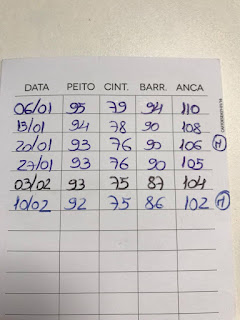 DATA PEITO CINT. BARR. ANCA
06/01 95 79 94 110
13/01 94 78 90 108
20/01 93 76 90 106 H
27/01 93 76 90 105
03/02 93 75 87 104
10/02 92 75 86 102 H